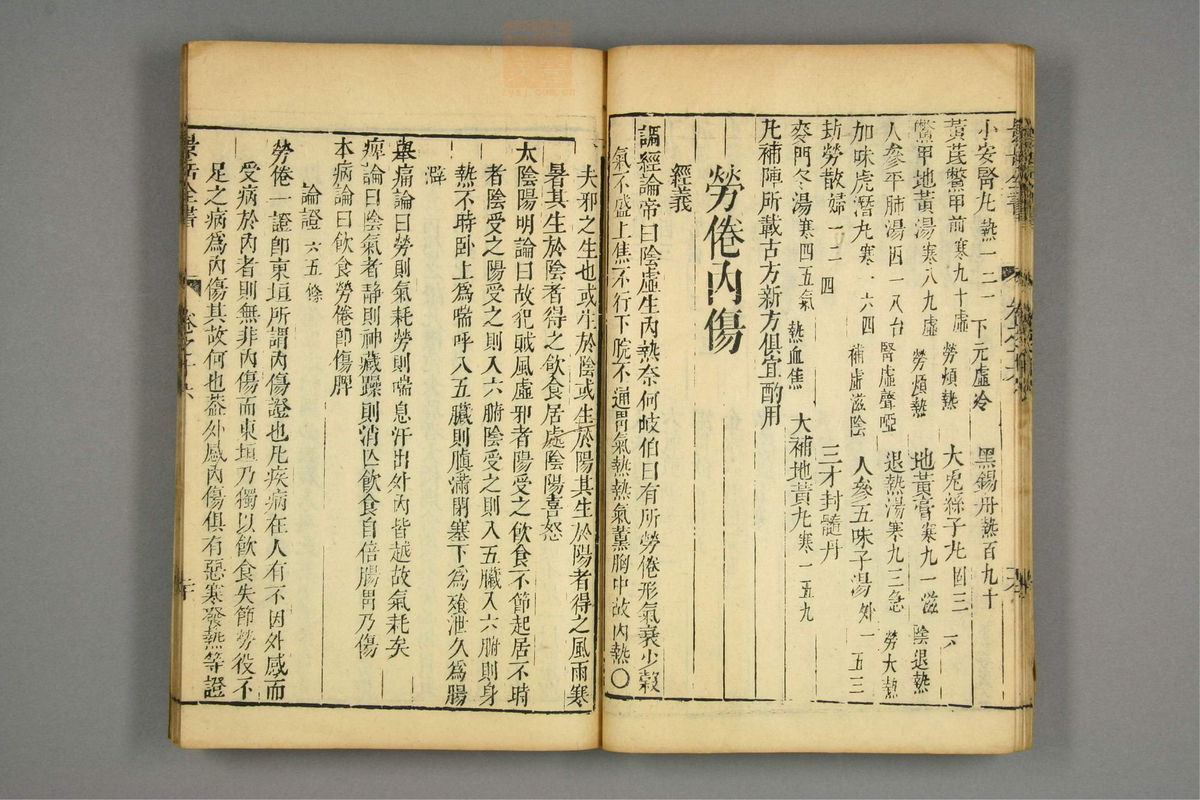 小安腎丸 熱一二一 下元虛冷 黑錫丹 熱百九十
黃芪鱉甲煎 寒九十 虛勞煩熱 大兔絲子丸 固三六
鱉甲地黃湯 寒八九 虛勞煩熱 地黃膏 寒九一 滋陰退熱
人參平肺湯 一八 腎虛聲啞 退熱湯 寒九三 急勞大熱
加味虎潛丸 寒一六四 補虛滋陰 人參五味子湯 外一五三
劫勞散 婦一二四 三才封髓丹
麥門冬湯 寒四五 氣熱血焦 大補地黃丸 寒一五九
凡補陣所載古方新方俱宜酌用
勞倦內傷
經義
調經論帝曰陰虛生內熱奈何岐伯曰有所勞倦形氣衰少穀
氣不盛上焦不行下脘不通胃氣熱熱氣薰胸中故內熱〇
夫邪之生也或生於陰或生於陽其生於陽者得之風雨寒
暑其生於陰者得之飲食居處陰陽喜怒
太陰陽明論曰故犯賊風虛邪者陽受之飲食不節起居不時
者陰受之陽受之則入六腑陰受之則入五臟入六腑則身
熱不時卧上為喘呼入五臟則䐜滿閉塞下為飧泄久為腸
澼
舉痛論曰勞則氣耗勞則喘息汗出外內皆越故氣耗矣
痺論曰陰氣者靜則神藏躁則消亡飲食自倍腸胃乃傷
本病論曰飲食勞倦卽傷脾
論證 六五 條
勞倦一證卽東垣所謂內傷證也凡疾病在人有不因外感而
受病於內者則無非內傷而東垣乃獨以飲食失節勞役不
足之病為內傷其故何也蓋外感內傷俱有惡寒發熱等證
景岳全書
卷之十六